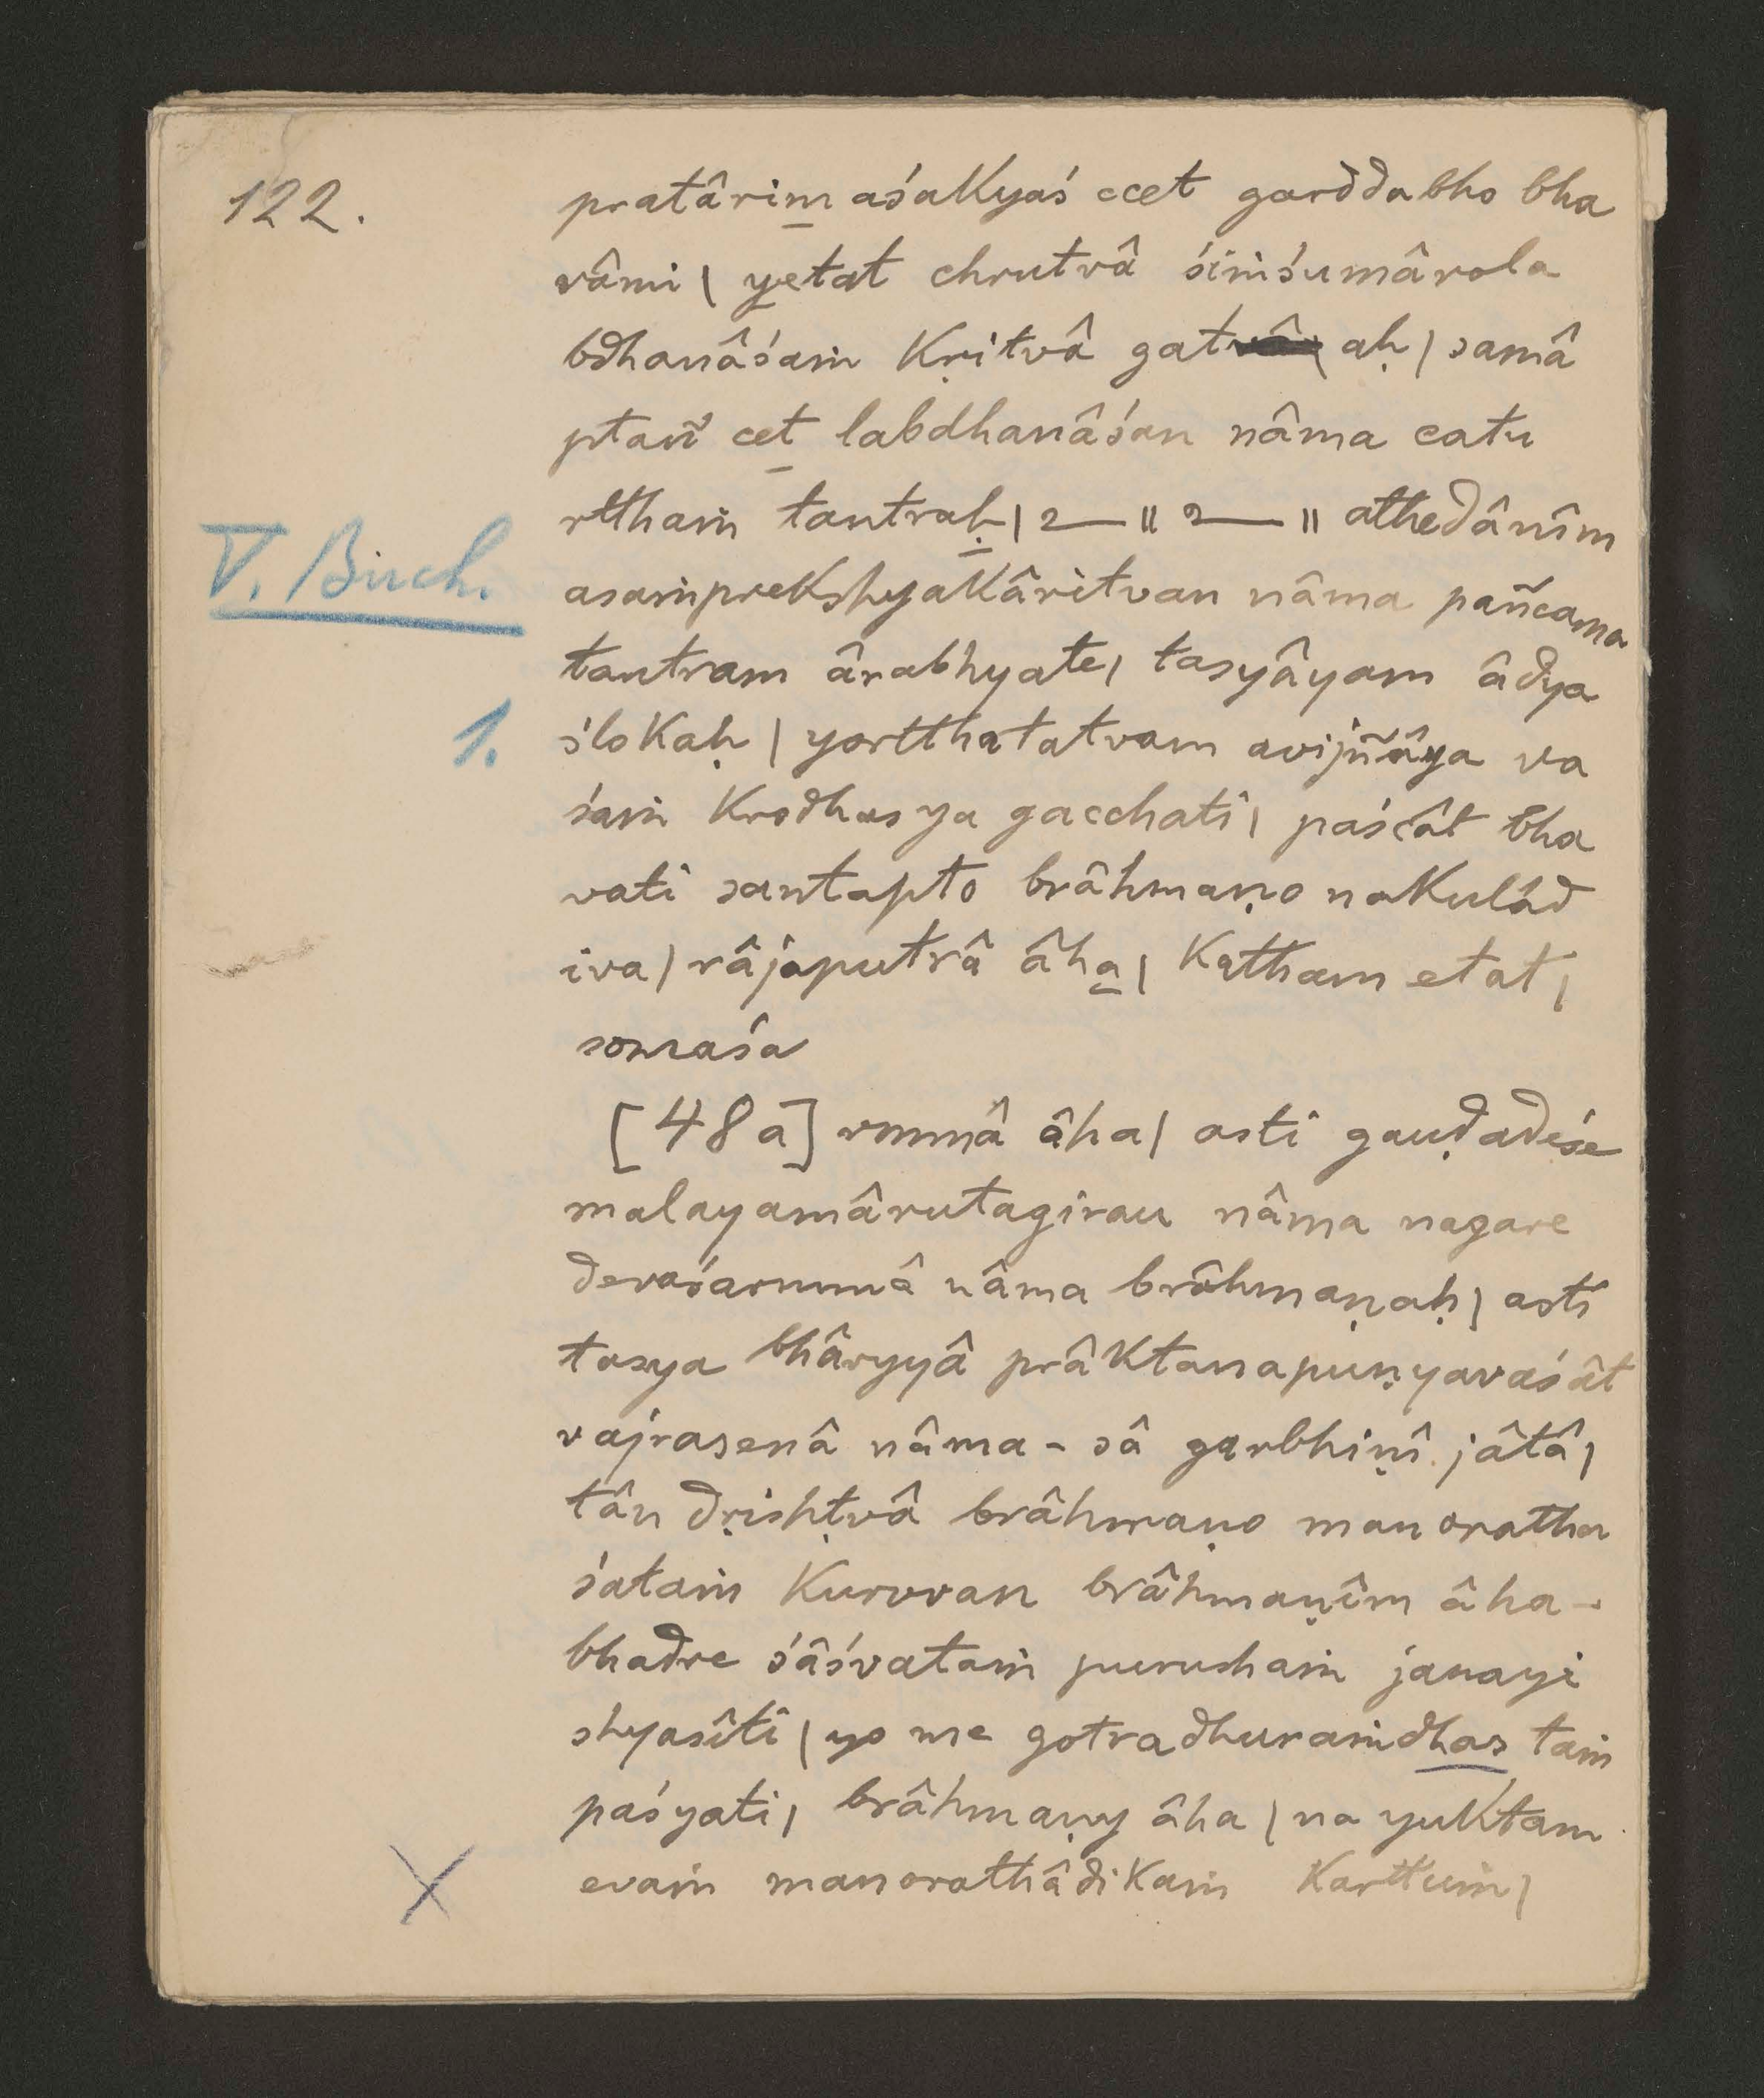 122.
pratârim aśakyaś ccet garddabho bha
vâmi | yetat chrutvâ śiṁśumârola
bdhanâśaṁ kṛitvâ gat aḥ | samâ
ptañ cet labdhanâśan nâma catu
rtthaṁ tantraḥ | 2— || 2— || athedânîm
V. Buch.
asaṁprekshyakâritvan nâma pañcama
tantram ârabhyate | tasyâyam âdya
1.
ślokaḥ | yortthatatvam avijñâya va
śaṁ krodhasya gacchati | paścât bha
vati santapto brâhmaṇo nakulâd
iva | râjaputrâ âha | katham etat |
somaśa
[48a] rmmâ âha | asti gauḍadeśe
malayamârutagirau nâma nagare
devaśarmmâ nâma brâhmaṇaḥ | asti
tasya bhâryyâ prâktanapuṇyavaśât
vajrasenâ nâma - sâ garbhiṇî jâtâ |
tân dṛishṭvâ brâhmaṇo manoratha
śataṁ kurvvan brâhmaṇîm âha -
bhadre śâśvataṁ purushaṁ janayi
shyasîti | yo me gotradhuraṁdhas taṁ
paśyati | brâhmaṇy âha | na yuktam
evaṁ manorathâdikaṁ karttuṁ |